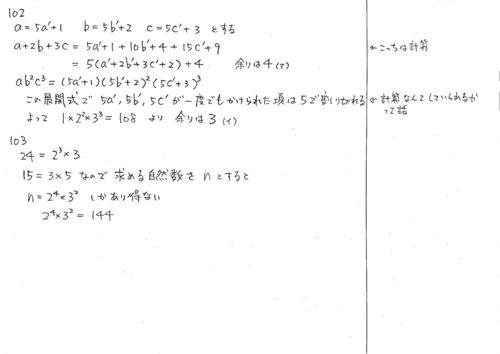 102
a=5a'+1 b=5b'+2 c=5c'+3 とする
a+2b+3c = 5a'+1+10b'+4+15c'+9 ←こっちは計算
= 5(a'+2b'+3c'+2)+4 余りは4(ア)
ab²c³ = (5a'+1)(5b'+2)²(5c'+3)³
この展開式で 5a', 5b', 5c'が一度でもかけられた項は5で割り切れる ←計算なんてしていられるか
よって 1×2²×3³=108 より 余りは3(イ) って話
103
24=2³×3
15=3×5 なので 求める自然数を nとすると
n=2⁴×3² しかあり得ない
2⁴×3²=144